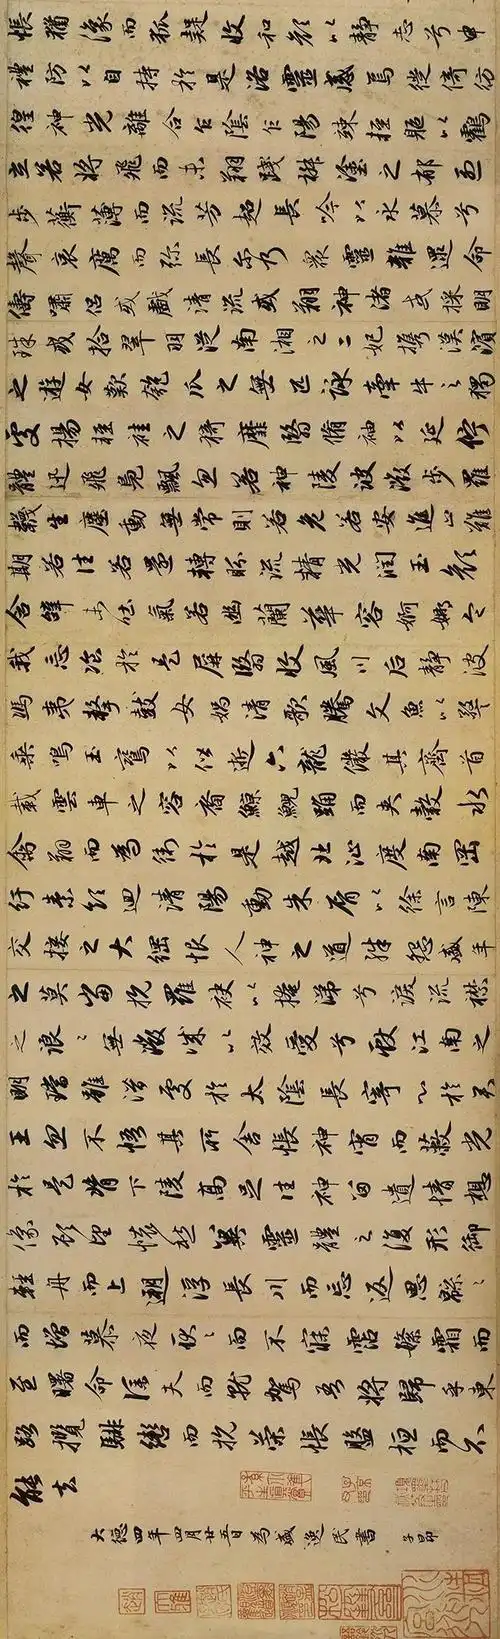 悵猶豫而狐疑收和顏以靜志兮申
禮防以自持於是洛靈感焉徙倚彷
徨神光離合乍陰乍陽竦輕軀以鶴
立若將飛而未翔踐椒塗之郁烈
步蘅薄而流芳超長吟以永慕兮
聲哀厲而彌長爾乃衆靈雜遝命
儔嘯侶或戲清流或翔神渚或採明
珠或拾翠羽從南湘之二妃携漢濱
之遊女歎匏瓜之無匹詠牽牛之獨
處揚輕袿之猗靡翳脩袖以延佇
體迅飛鳧飄忽若神陵波微步羅
韈生塵動無常則若危若安進止難
期若往若還轉眄流精光潤玉顏
含辭未吐氣若幽蘭華容婀娜令
我忘飡於是屏翳收風川后靜波
馮夷擊鼓女媧清歌騰文魚以警
乘鳴玉鸞以偕逝六龍儼其齊首
載雲車之容裔鯨鯢踊而夾轂水
禽翔而為衛於是越北沚度南岡
紆素領迴清陽動朱脣以徐言陳
交接之大綱恨人神之道殊怨盛年
之莫當抗羅袂以掩涕兮淚流襟
之浪〻無微情以效愛兮獻江南之
明璫雖潛處於太陰長寄心於君
王忽不悟其所舍悵神宵而蔽光
於是背下陵高足往神留遺情想
像顧望懷愁冀靈體之復形御
輕舟而上遡浮長川而忘返思緜〻
而增慕夜耿〻而不寐霑繁霜而
至曙命僕夫而就駕吾將歸乎東
路攬騑轡而抗策悵盤桓而不
能去
大德四年四月廿五日為盛逸民書 子昂